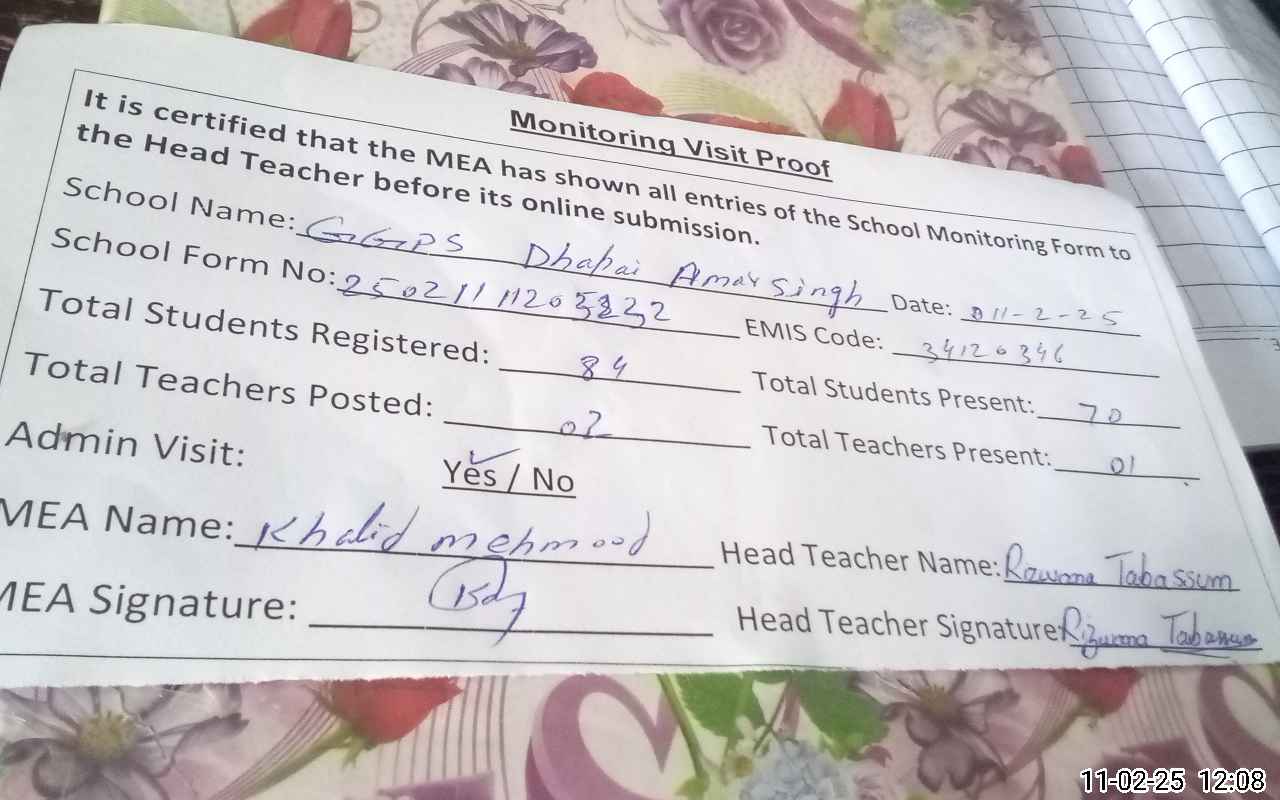 Monitoring Visit Proof
It is certified that the MEA has shown all entries of the School Monitoring Form to
the Head Teacher before its online submission.
School Name: GGPS Dhapai Amar Singh Date: 11-2-25
School Form No: EMIS Code: 34120346
Total Students Registered: 84 Total Students Present: 70
Total Teachers Posted: 02 Total Teachers Present: 01
Admin Visit: Yes / No
MEA Name: Khalid mehmood Head Teacher Name: Tabassum
MEA Signature: Head Teacher Signature: Tabassum
11-02-25 12:08